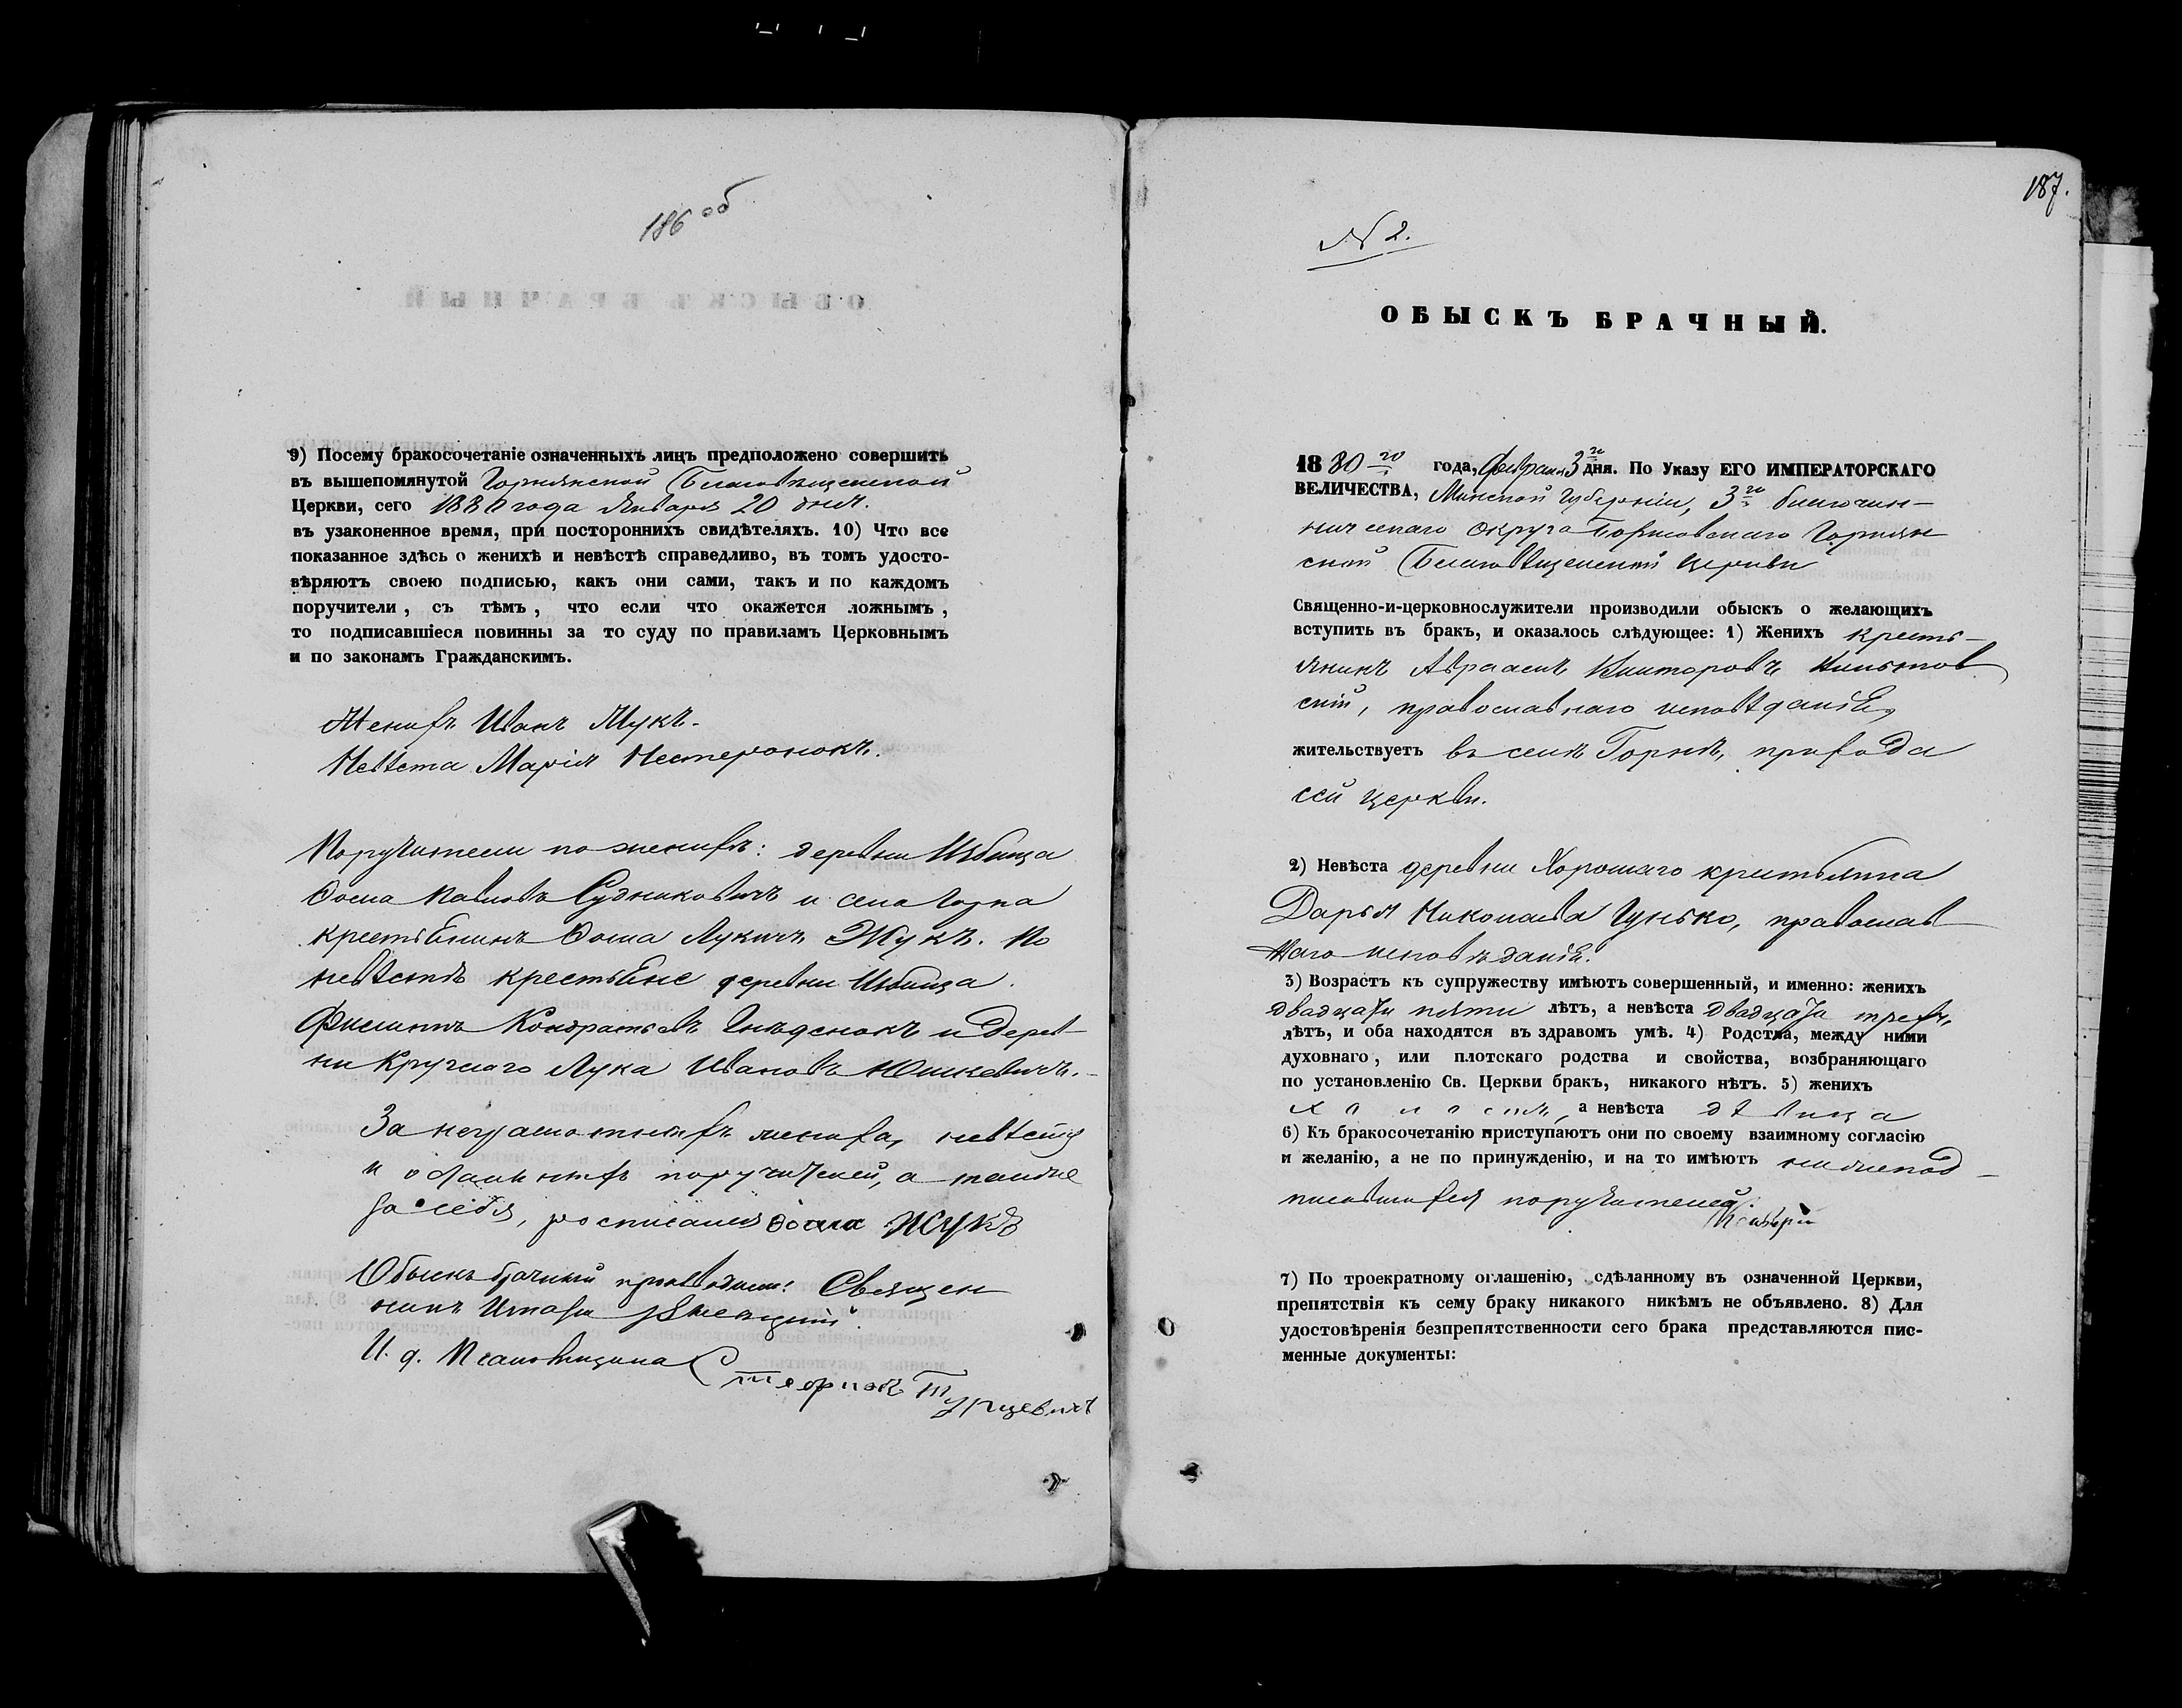 186 об
9) Посему бракосочетаніе означенныхъ лицъ предположено совершить
въ вышепомянутой Горнянской Благовѣщенской
Церкви, сего 1880 года Января 20 дня.
въ узаконенное время, при постороннихъ свидѣтеляхъ. 10) Что все
показанное здѣсь о женихѣ и невѣстѣ справедливо, въ томъ удосто-
вѣряютъ своею подписью, какъ они сами, такъ и по каждомъ
поручители, съ тѣмъ, что если что окажется ложнымъ,
то подписавшіеся повинны за то суду по правиламъ Церковнымъ
и по законамъ Гражданскимъ.
Женихъ Иванъ Жукъ.
Невѣста Марія Нестеронокъ.
Поручители по женихѣ: деревни Избища
Ѳома Павловъ Судниковичъ и села Горна
крестьянинъ Ѳома Лукичъ Жукъ. По
невѣстѣ крестьяне деревни Избища
Филиппъ Кондратьевъ Гнѣденокъ и дерев-
ни Кручнаго Лука Ивановъ Юшкевичъ.
За неграмотныхъ жениха, невѣсту
и остальныхъ поручителей, а также
за себя, росписался Ѳома Жукъ
Обыскъ брачный производили: Священ
никъ
И. д. Псаломщика Турцевичъ
187.
N 2.
ОБЫСКЪ БРАЧНЫЙ.
1880 го года, Февраля 3 го дня. По Указу ЕГО ИМПЕРАТОРСКАГО
ВЕЛИЧЕСТВА, Минской Губерніи, 3 го благочин-
ническаго округа Борисовскаго Горнян
ской Благовѣщенской церкви
Священно-и-церковнослужители производили обыскъ о желающихъ
вступить въ бракъ, и оказалось слѣдующее: 1) Женихъ кресть-
янинъ Авраамъ Викторовъ
православнаго исповѣданія,
жительствуетъ въ селѣ Горнѣ, прихода
сей церкви.
2) Невѣста деревни Хорошаго крестьянка
Дарья Николаева Гунько, православ
наго исповѣданія.
3) Возрастъ къ супружеству имѣютъ совершенный, и именно: женихъ
двадцати пяти лѣтъ, а невѣста двадцати трехъ
лѣтъ, и оба находятся въ здравомъ умѣ. 4) Родства, между ними
духовнаго, или плотскаго родства и свойства, возбраняющаго
по установленію Св. Церкви бракъ, никакого нѣтъ. 5) женихъ
холостъ, а невѣста дѣвица
6) Къ бракосочетанію приступаютъ они по своему взаимному согласію
и желанію, а не по принужденію, и на то имѣютъ нижепод-
писавшихся поручителей.
7) По троекратному оглашенію, сдѣланному въ означенной Церкви,
препятствія къ сему браку никакого никѣмъ не объявлено. 8) Для
удостовѣренія безпрепятственности сего брака представляются пис-
менные документы: